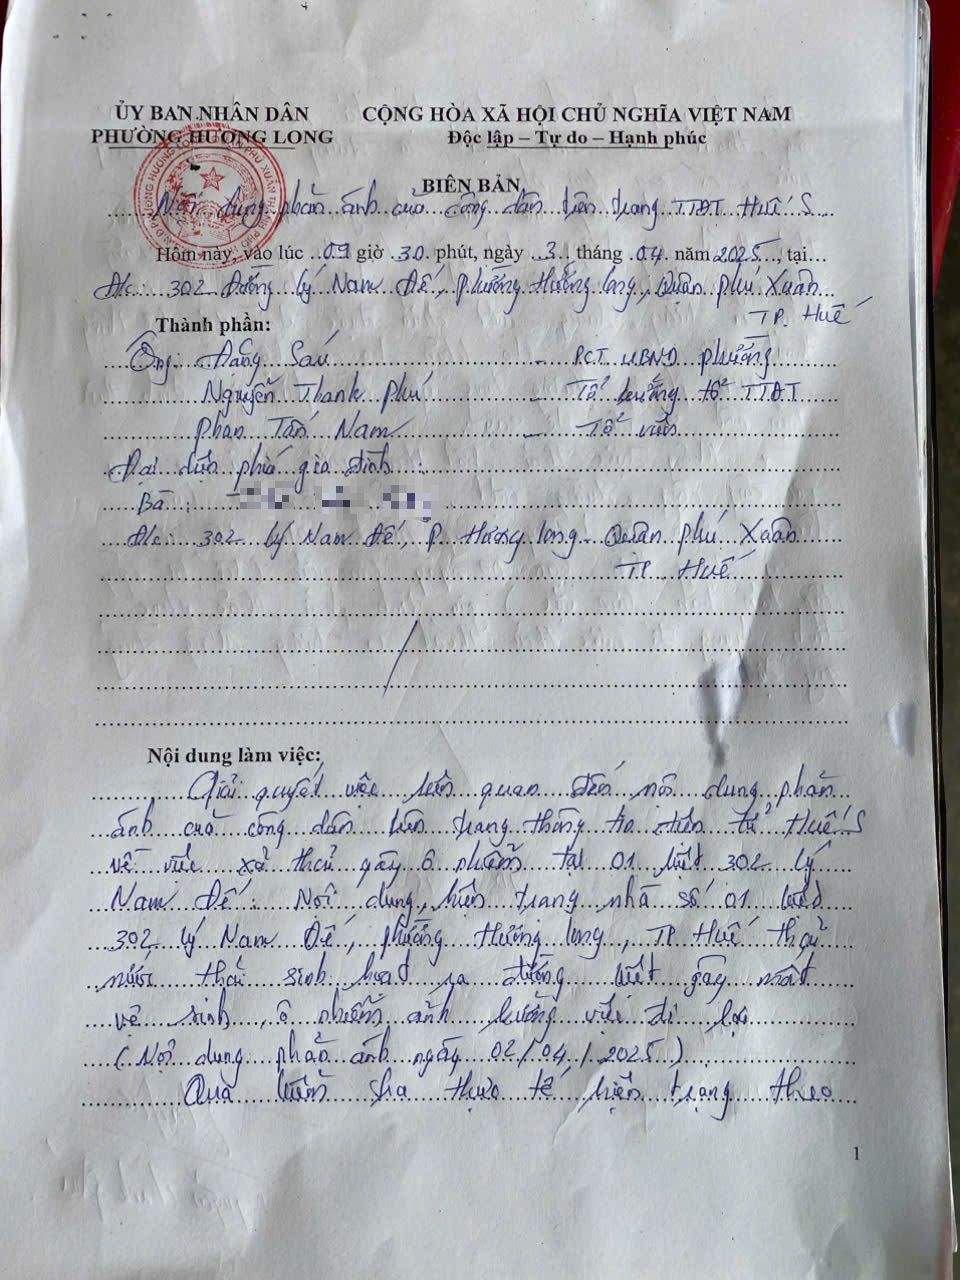 ỦY BAN NHÂN DÂN
PHƯỜNG HƯƠNG LONG
CỘNG HÒA XÃ HỘI CHỦ NGHĨA VIỆT NAM
Độc lập – Tự do – Hạnh phúc
BIÊN BẢN
Nội dung phản ánh của công dân trên trang TTĐT Huế S
Hôm nay, vào lúc 09 giờ 30 phút, ngày 3 tháng 04 năm 2025, tại
Đ/c: 302 Đường Lý Nam Đế, Phường Hương Long, Quận Phú Xuân
TP. Huế
Thành phần:
Ông: Đặng Sáu - PCT UBND phường
Nguyễn Thanh Phú Tổ trưởng tổ TTĐT
Phan Tấn Nam - Tổ viên
Đại diện phía gia đình :
Bà :
Đ/c: 302 Lý Nam Đế, P. Hương Long - Quận Phú Xuân
TP Huế
Nội dung làm việc:
Giải quyết việc liên quan đến nội dung phản
ánh của công dân trên trang thông tin điện tử Huế S
về việc xả thải gây ô nhiễm tại 01 kiệt 302 Lý
Nam Đế: Nội dung, hiện trạng nhà số 01 kiệt
302 Lý Nam Đế, phường Hương Long, TP Huế thải
nước thải sinh hoạt ra đường kiệt gây mất
vệ sinh, ô nhiễm ảnh hưởng việc đi lại
(Nội dung phản ánh ngày 02/04/2025)
Qua kiểm tra thực tế hiện trạng theo
1